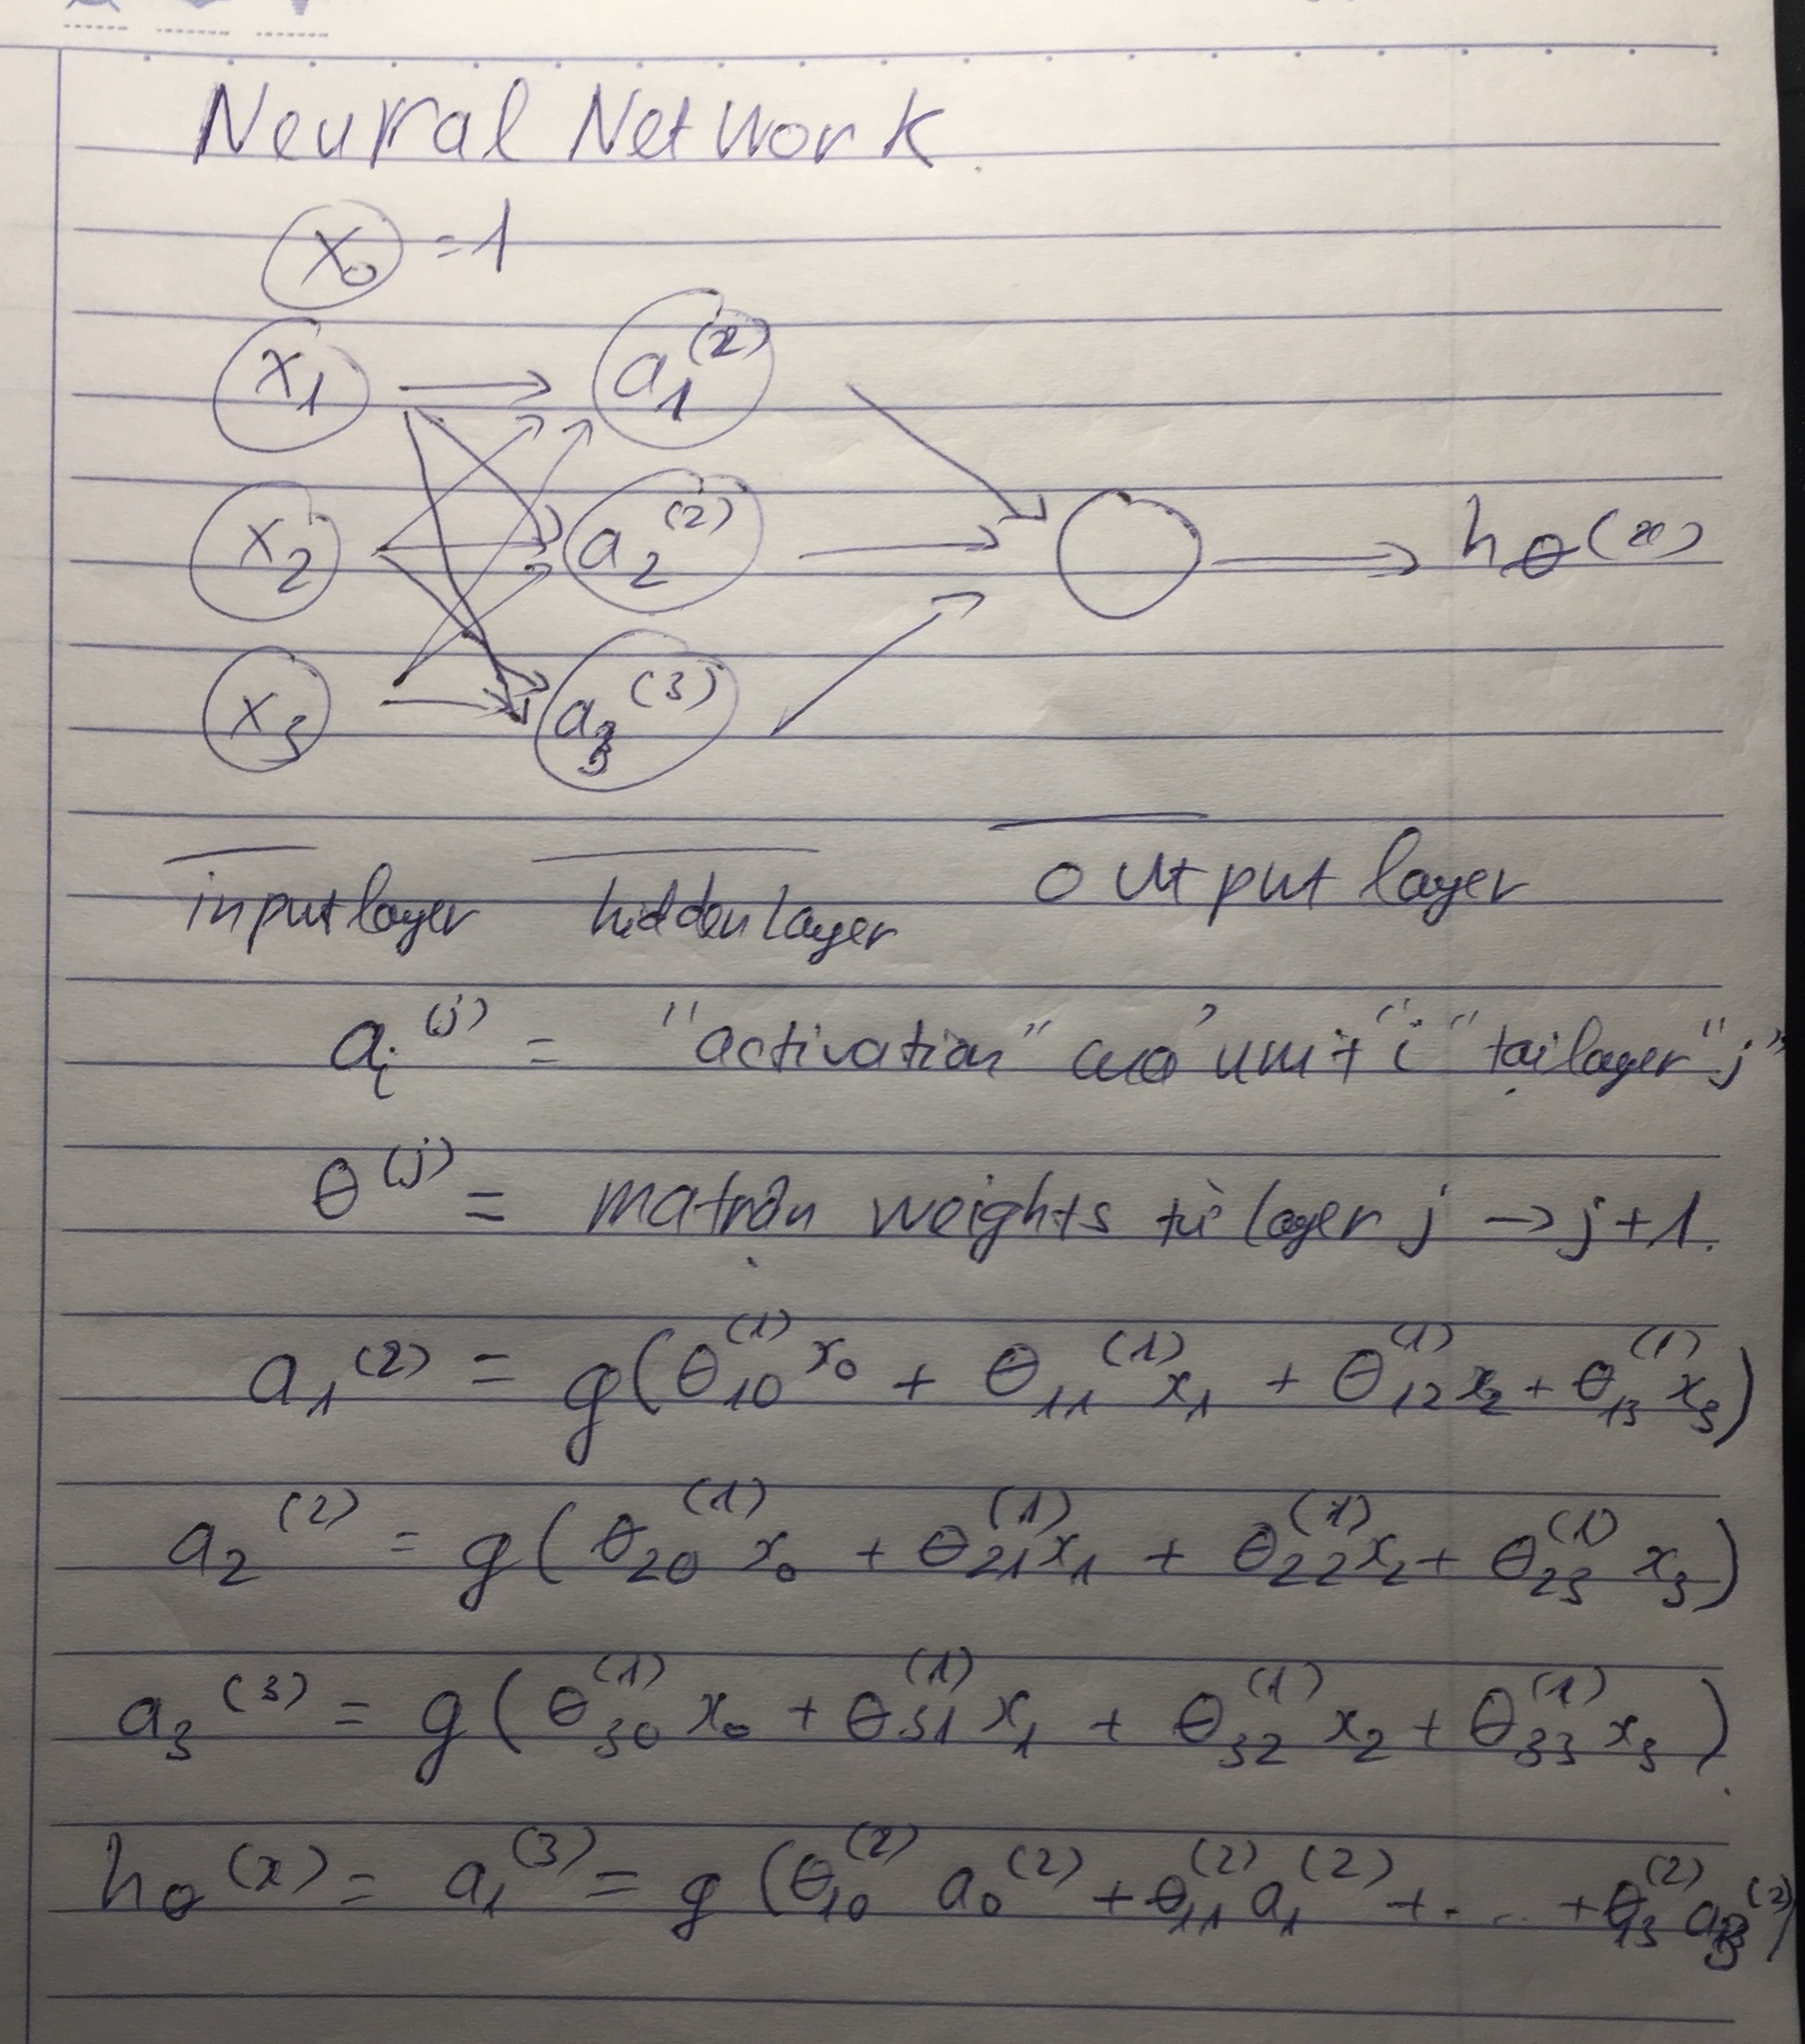 Neural Network
x₀ = 1
x₁ a₁⁽²⁾
x₂ a₂⁽²⁾ hθ(x)
x₃ a₃⁽³⁾
input layer hidden layer output layer
aᵢ⁽ʲ⁾ = "activation" của unit "i" tại layer "j"
θ⁽ʲ⁾ = ma trận weights từ layer j → j+1.
a₁⁽²⁾ = g(θ₁₀⁽¹⁾x₀ + θ₁₁⁽¹⁾x₁ + θ₁₂⁽¹⁾x₂ + θ₁₃⁽¹⁾x₃)
a₂⁽²⁾ = g(θ₂₀⁽¹⁾x₀ + θ₂₁⁽¹⁾x₁ + θ₂₂⁽¹⁾x₂ + θ₂₃⁽¹⁾x₃)
a₃⁽³⁾ = g(θ₃₀⁽¹⁾x₀ + θ₃₁⁽¹⁾x₁ + θ₃₂⁽¹⁾x₂ + θ₃₃⁽¹⁾x₃).
hθ(x) = a₁⁽³⁾ = g(θ₁₀⁽²⁾a₀⁽²⁾ + θ₁₁⁽²⁾a₁⁽²⁾ + ... + θ₁₃⁽²⁾a₃⁽²⁾)